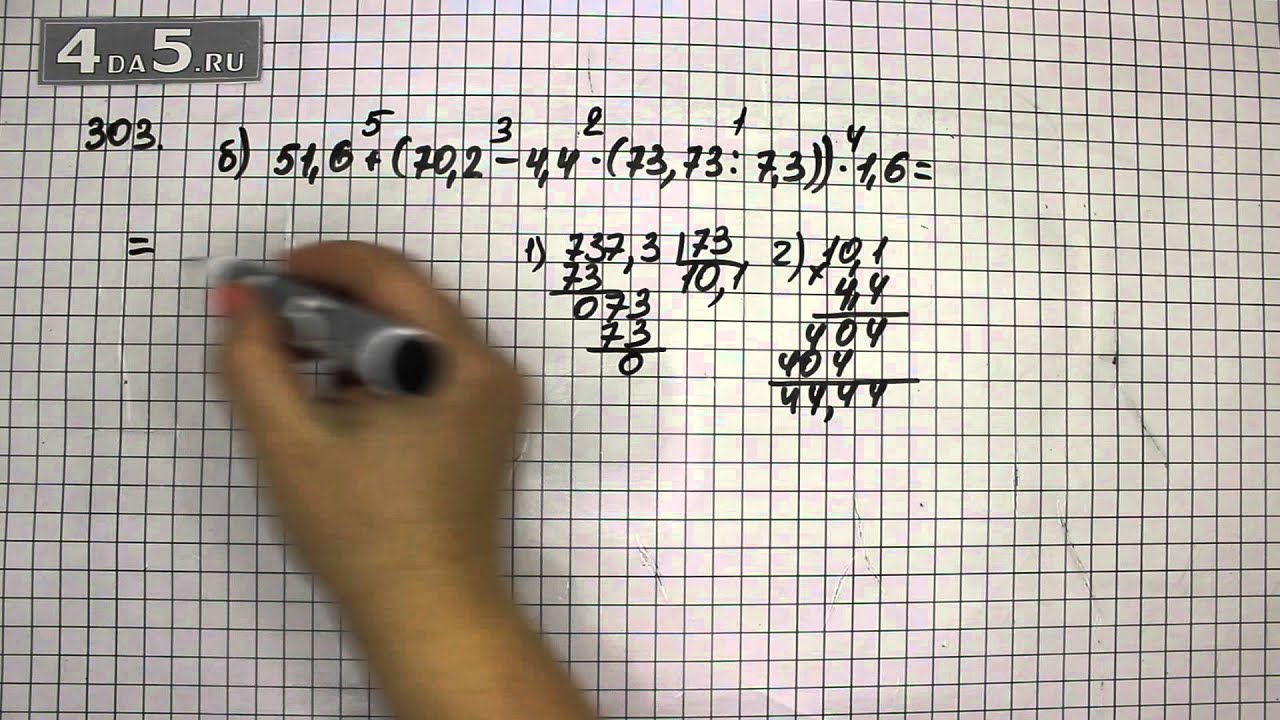 4ДА5.RU
303.
5 3 2 1 4
б) 51,6 + (70,2 - 4,4 · (73,73 : 7,3)) · 1,6 =
=
1) 737,3 | 73
73 10,1
073
73
0
2) × 10,1
4,4
404
404
44,44